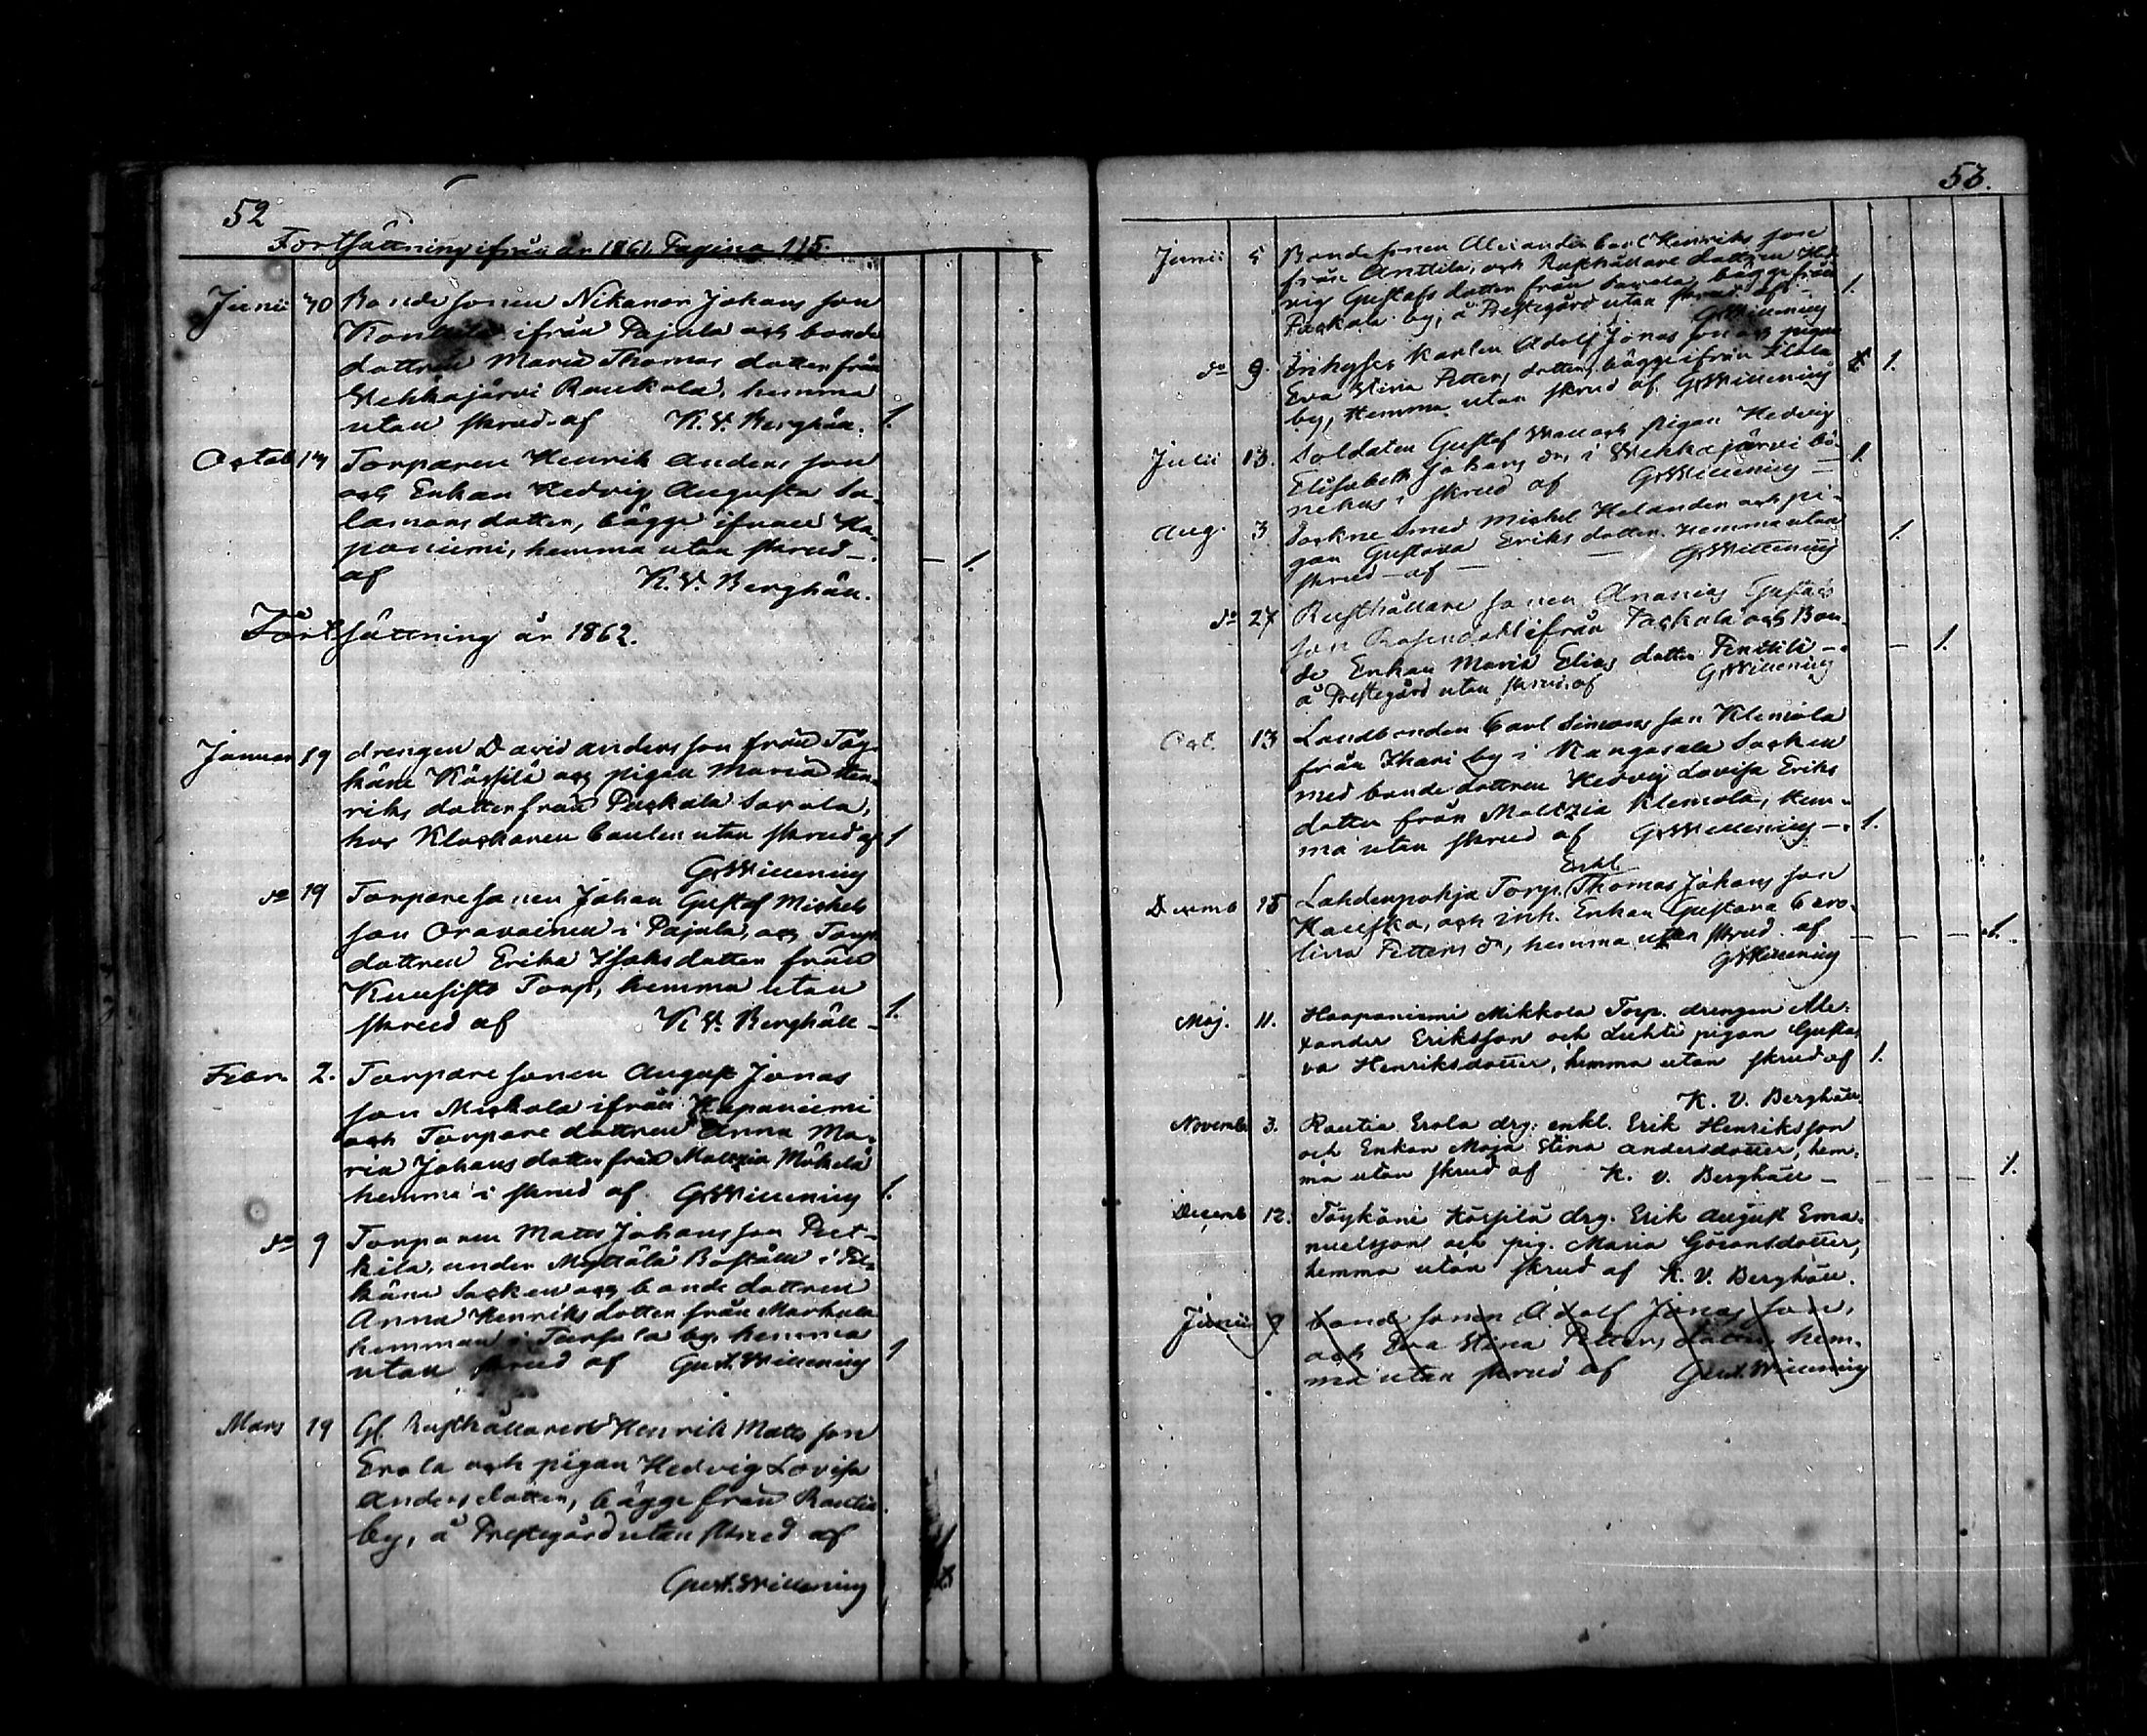 52
Fortsättning ifrån år 1861. Pagina 115.
Junii 30 Bonde sonen Nikanor Johans son
ifrån Pajula och bonde
dottren Maria Thomas dotter från
Vehkajärvi Raukola, hemma
utan skrud af K. V. Berghäll. 1.
Octob 14 Torparen Henrik Anders son
och Enkan Hedvig Augusta Sa-
lamons dotter, bägge ifrån Ha-
paniemi, hemma utan skrud —
af K. V. Berghäll. — 1.
Fortsättning år 1862.
Januar 19 drengen David Anders son från Töy-
käne Kössilä och pigan Maria Hen-
riks dotter från Packala Sarola,
hos Klockaren Caulen utan skrud af 1
G. Willening
do 19 Torpare sonen Johan Gustaf Michels
son Oravainen i Pajula, och Torp.
dottren Erika Isaks dotter från
Kuusisto Torp, hemma utan
skrud af K. V. Berghäll — 1.
Febr. 2. Torpare sonen August Jonas
son Mickola ifrån Hapaniemi
och Torpare dottren Anna Ma-
ria Johans dotter från Maltzia Mäkelä
hemma i skrud af G. Willening 1.
do 9 Torparen Matts Johans son Piet-
kilä, under Myttälä Boställe i Pel-
käne Socken och bonde dottren
Anna Henriks dotter från Markula
hemman i Tursola by, hemma
utan skrud af Gust. Willening 1
Mars 19 Gl. Rusthållaren Henrik Matts son
Erola och pigan Hedvig Lovisa
Anders dotter, bägge från Rautia
by, å Prestegård utan skrud af
Gust. Willening
53.
Junii 5 Bonde sonen Alexander Carl Henriks son
från Anttila, och Rusthållare dottren Hed-
vig Gustafs dotter från Sarola, bägge från
Packala by, å Prestegård utan skrud af — 1.
G. Willening
do 9. Inhyses Karlen Adolf Jonas son och pigan
Eva Stina Petters dotter, bägge ifrån
by, Hemma utan skrud af G. Willening 1.
Julii 13. Soldaten Gustaf Wall och pigan Hedvig
Elisabeth Johans dr, i Vehkajärvi bö-
nehus i skrud af G. Willening — 1.
Aug. 3 Sockne Smed Michel Helander och pi-
gan Gustava Eriks dotter. Hemma utan
skrud — af — G. Willening 1.
do 27 Rusthållare sonen Ananias Gustafs
son Rosendahl ifrån Packala och Bon-
de Enkan Maria Elias dotter Penttilä —
å Prestegård utan skrud af G. Willening — 1.
Oct. 13 Landbonden Carl Simons son Klemola
från Ihari by i Kangasala Socken
med bonde dottren Hedvig Lovisa Eriks
dotter från Maltzia Klemola, Hem-
ma utan skrud af G. Willening — 1.
Enkl.
Decemb 15 Lahdenpohja Torp. Thomas Johans son
och inh. Enkan Gustava Caro-
lina Petters dr, hemma utan skrud af — — — 1.
G. Willening
Maj. 11. Haapaniemi Mikkola Torp. drengen Ale-
xander Eriksson och Luhti pigan Gusta-
va Henriksdotter, hemma utan skrud af 1.
K. V. Berghäll.
Novemb 3. Rautia Erola drg. enkl. Erik Henriksson
och Enkan Maja Stina Andersdotter, hem-
ma utan skrud af K. V. Berghäll — — — — 1.
Decemb 12. Töykäne Kössilä drg. Erik August Ema-
nuelsson och pig. Maria Göransdotter,
hemma utan skrud af K. V. Berghäll.
Junii 9 bonde sonen Adolf Jonas son,
och Eva Stina Petters dotter, hem-
ma utan skrud af Gust. Willening